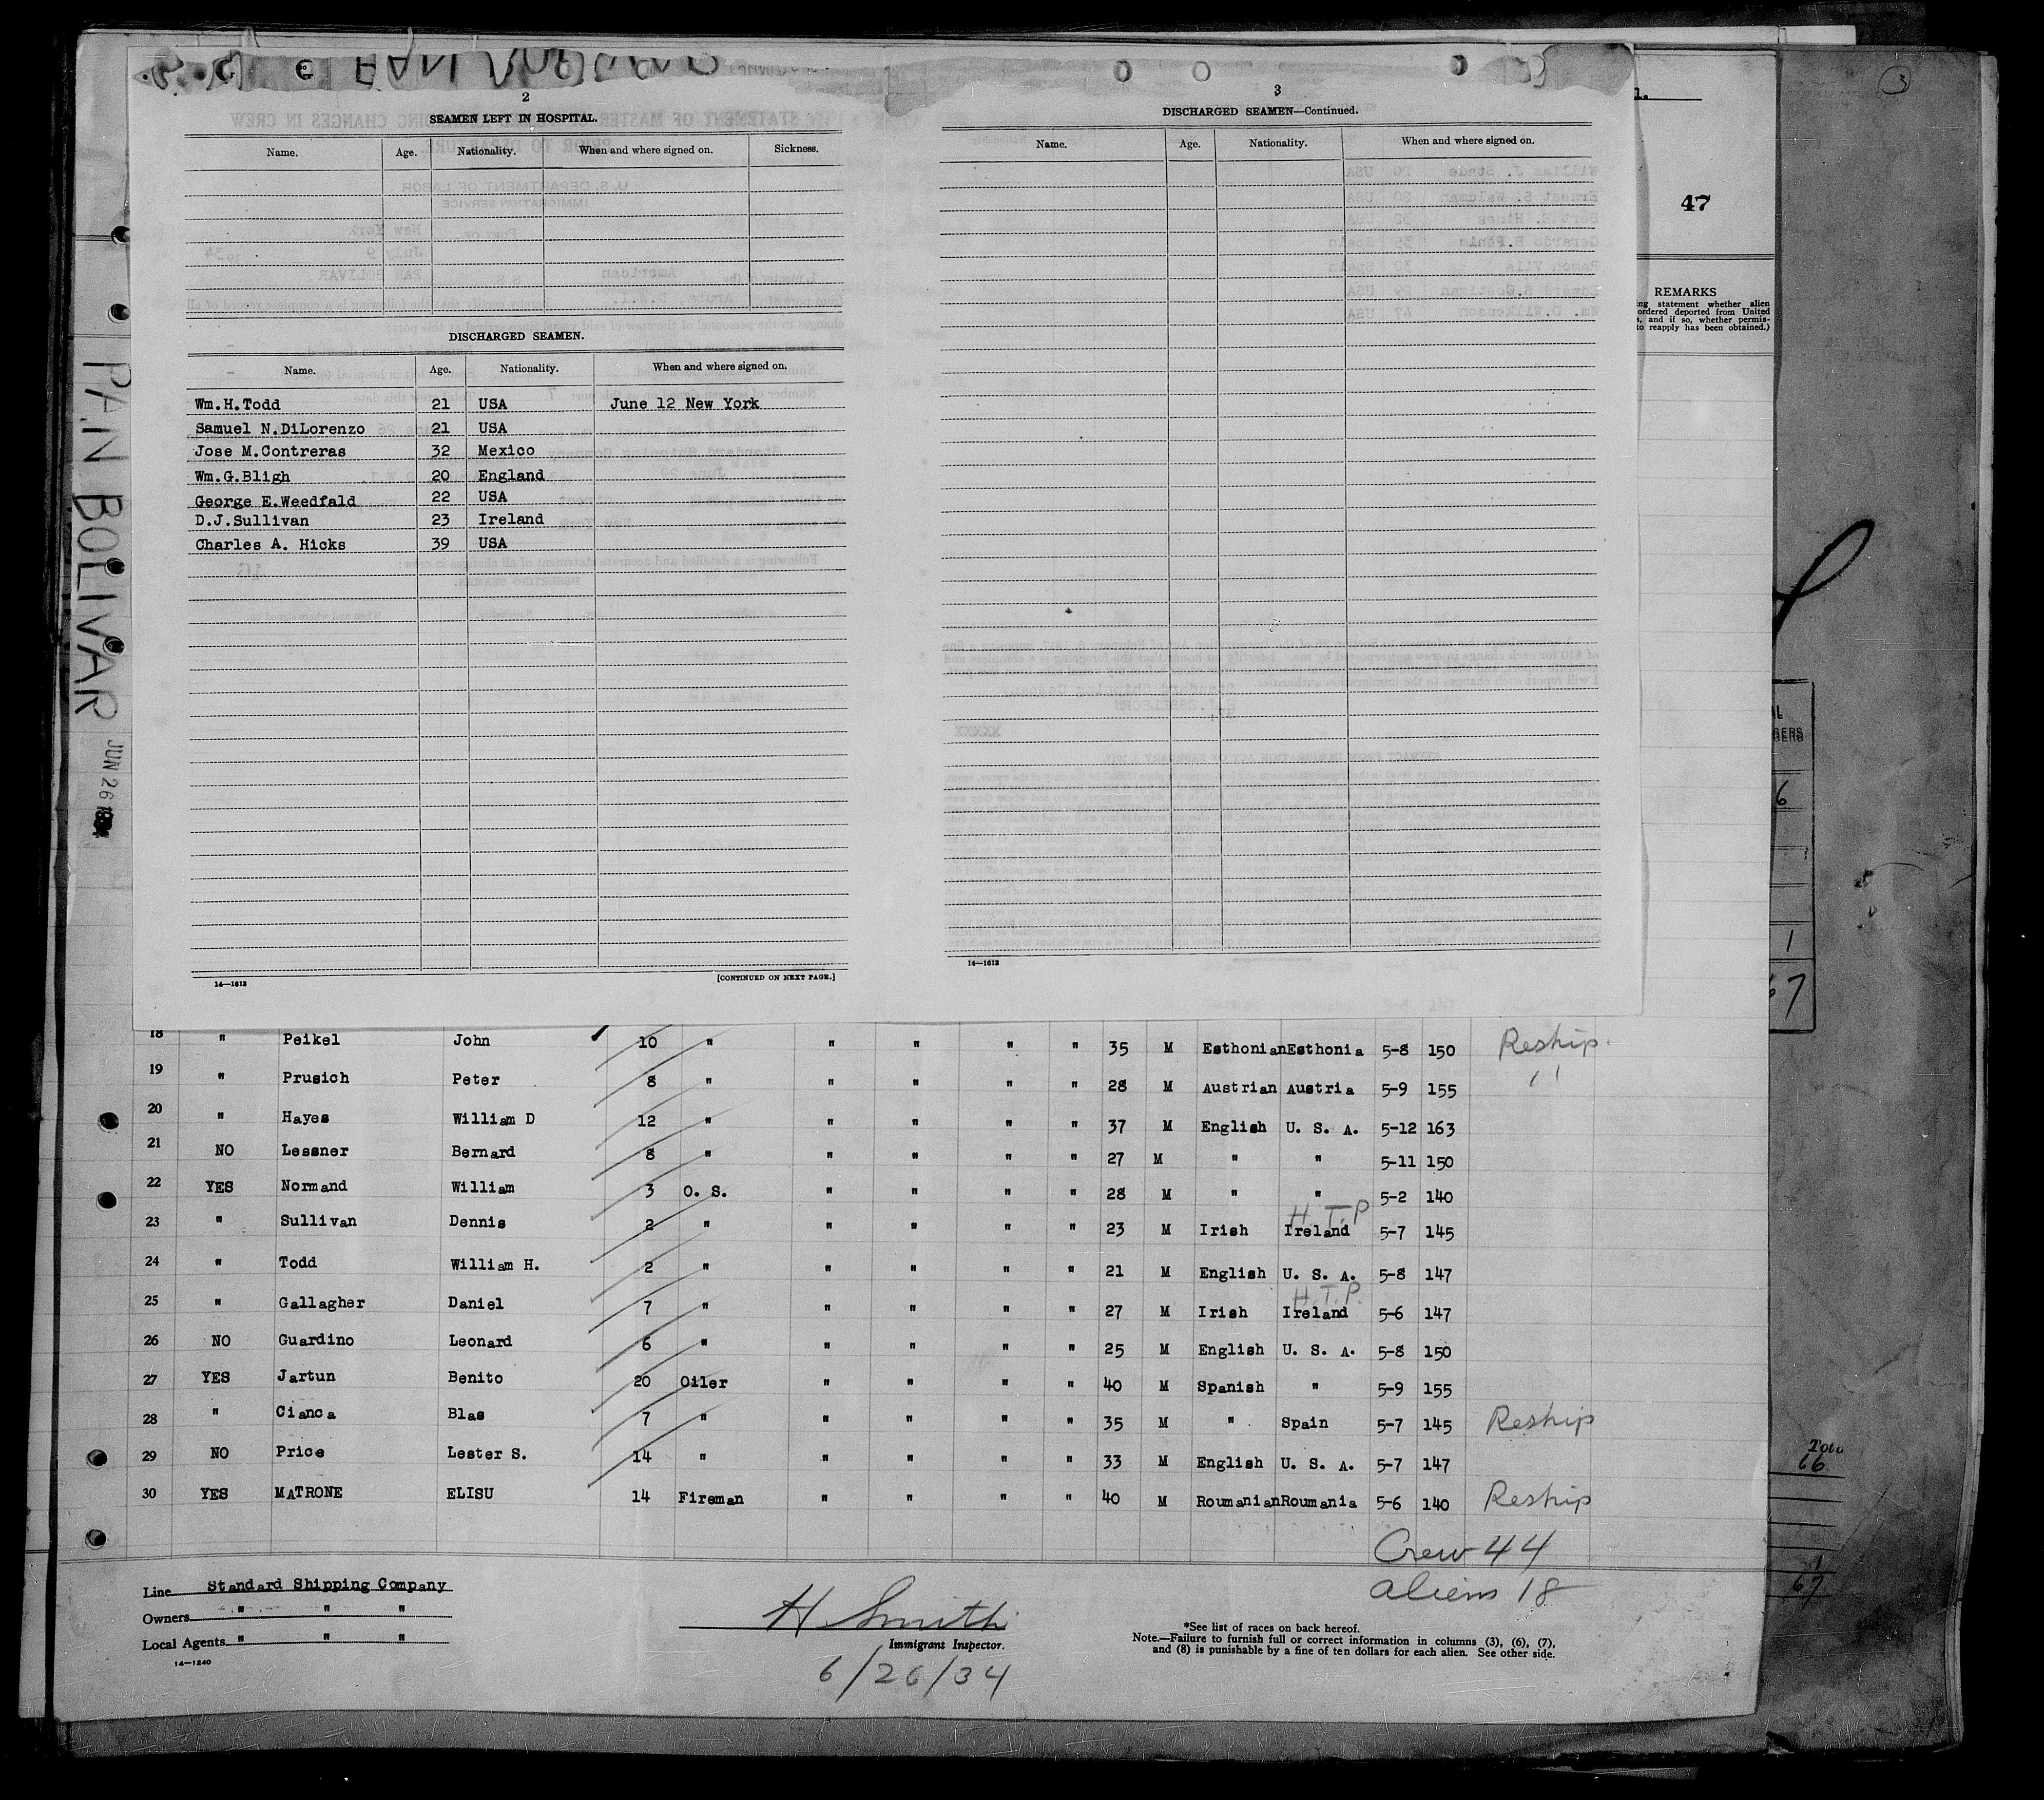 2
SEAMEN LEFT IN HOSPITAL.
Name. Age. Nationality. When and where signed on. Sickness.
DISCHARGED SEAMEN.
Name. Age. Nationality. When and where signed on.
Wm.H.Todd 21 USA June 12 New York
Samuel N.DiLorenzo 21 USA
Jose M.Contreras 32 Mexico
Wm.G.Bligh 20 England
George E.Weedfald 22 USA
D.J.Sullivan 23 Ireland
Charles A. Hicks 39 USA
14—1613
[CONTINUED ON NEXT PAGE.]
3
DISCHARGED SEAMEN—Continued.
Name. Age. Nationality. When and where signed on.
14—1613
3
47
REMARKS
ing statement whether alien
ordered deported from United
s, and if so, whether permis-
to reapply has been obtained.)
PAN BOLIVAR
JUN 26
18 " Peikel John 10 " " " " " 35 M Esthonian Esthonia 5-8 150 Reship
19 " Prusich Peter 8 " " " " " 28 M Austrian Austria 5-9 155 "
20 " Hayes William D 12 " " " " " 37 M English U. S. A. 5-12 163
21 NO Lessner Bernard 8 " " " " " 27 M " " 5-11 150
22 YES Normand William 3 O. S. " " " " 28 M " " 5-2 140
H.T.P
23 " Sullivan Dennis 2 " " " " " 23 M Irish Ireland 5-7 145
24 " Todd William H. 2 " " " " " 21 M English U. S. A. 5-8 147
H.T.P.
25 " Gallagher Daniel 7 " " " " " 27 M Irish Ireland 5-6 147
26 NO Guardino Leonard 6 " " " " " 25 M English U. S. A. 5-8 150
27 YES Jartun Benito 20 Oiler " " " " 40 M Spanish " 5-9 155
28 " Cianca Blas 7 " " " " " 35 M " Spain 5-7 145 Reship
29 NO Price Lester S. 14 " " " " " 33 M English U. S. A. 5-7 147
30 YES MATRONE ELISU 14 Fireman " " " " 40 M Roumanian Roumania 5-6 140 Reship
Crew 44
aliens 18
Line Standard Shipping Company
Owners " " "
Local Agents " " "
14—1240
H Smith
Immigrant Inspector.
6/26/34
*See list of races on back hereof.
Note.—Failure to furnish full or correct information in columns (3), (6), (7),
and (8) is punishable by a fine of ten dollars for each alien. See other side.
6
1
67
66
1
67